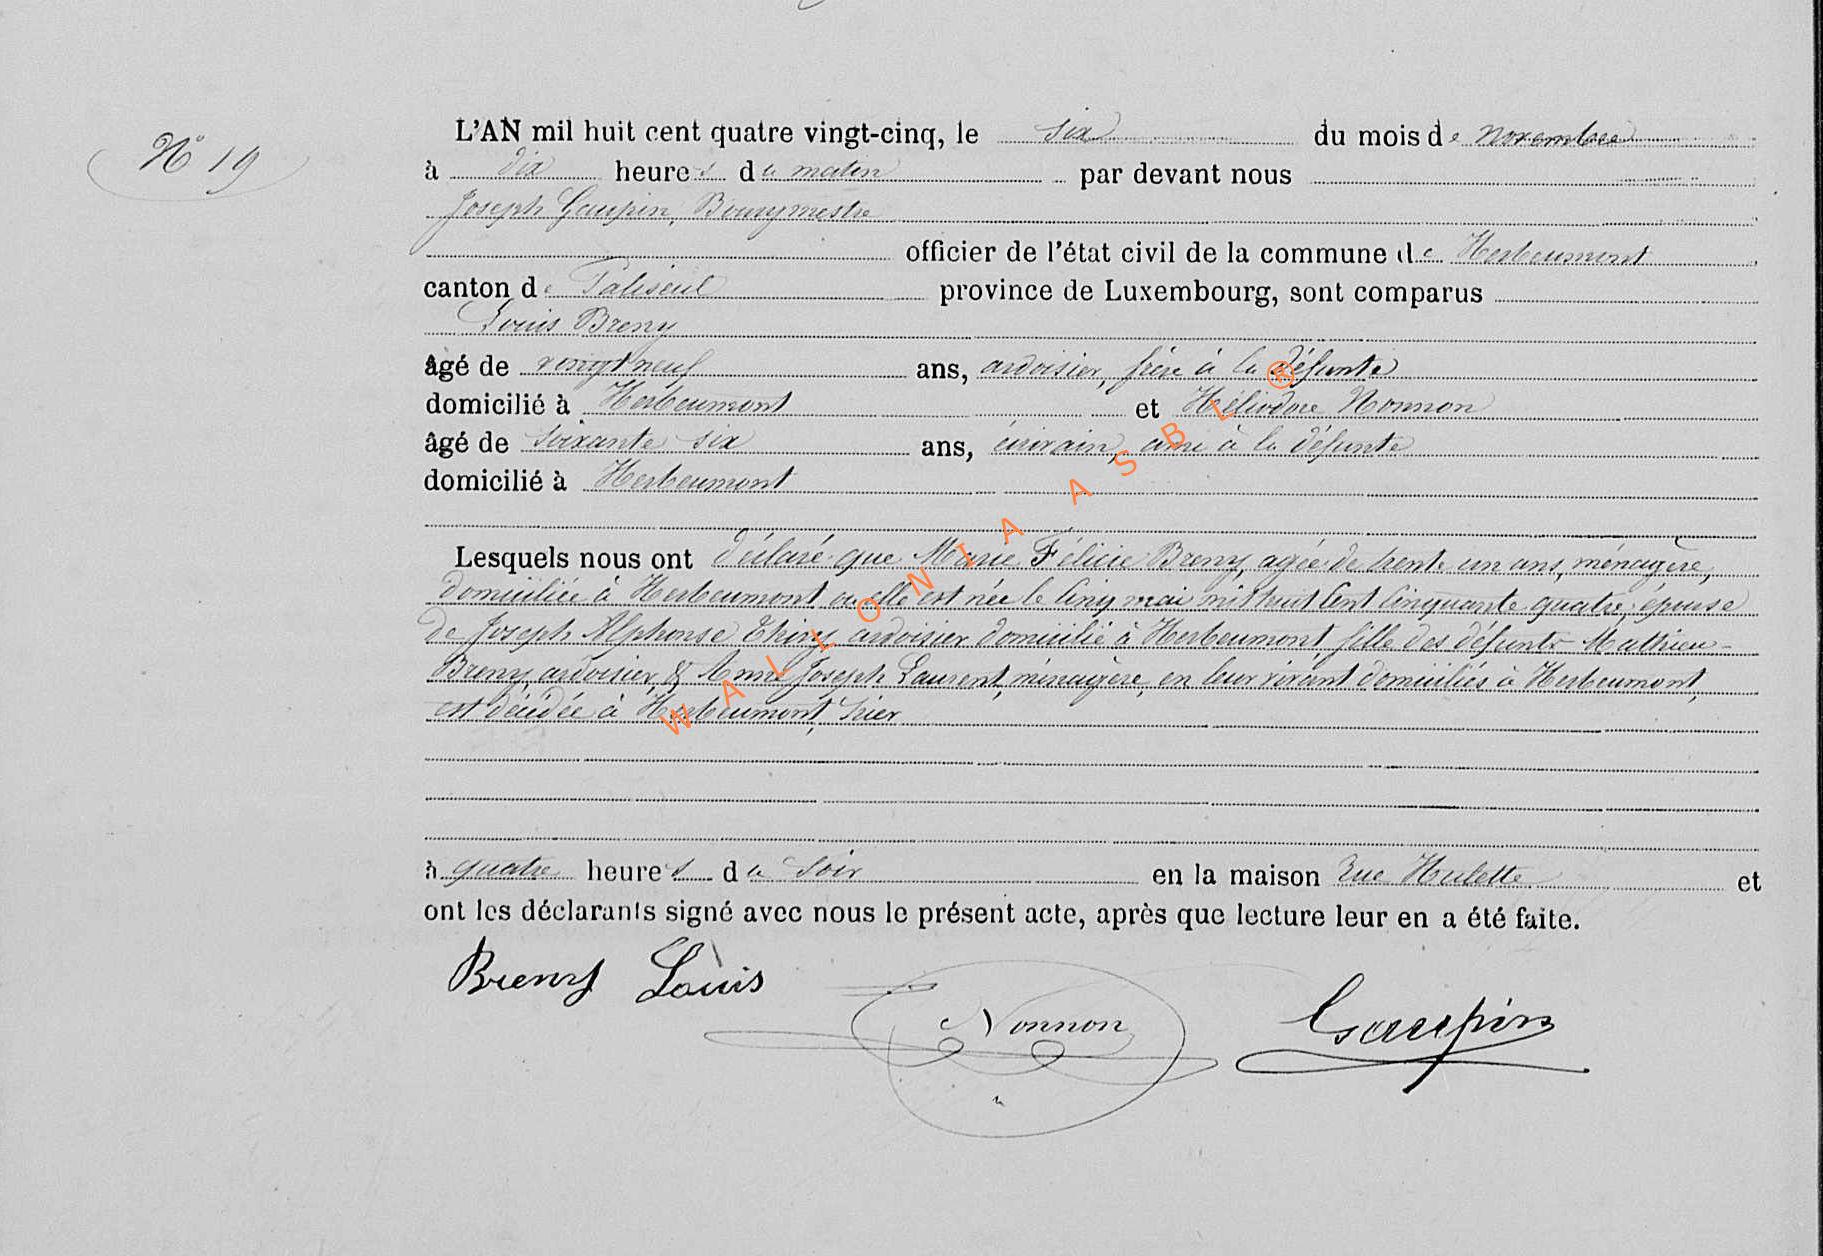 N° 19
L'AN mil huit cent quatre vingt-cinq, le six du mois de novembre
à dix heures du matin par devant nous
Joseph Gaupin, Bourgmestre
officier de l'état civil de la commune de Herbeumont
canton de Paliseul province de Luxembourg, sont comparus
Louis Breny
âgé de vingt neuf ans, ardoisier, frère à la défunte
domicilié à Herbeumont et Héliodore Nonnon
âgé de soixante six ans, écrivain, ami à la défunte
domicilié à Herbeumont
Lesquels nous ont déclaré que Marie Félicie Breny, agée de trente un ans, ménagère,
domiciliée à Herbeumont où elle est née le cinq mai mil huit cent cinquante quatre, épouse
de Joseph Alphonse Thiry ardoisier domicilié à Herbeumont fille des défunts Mathieu
Breny, ardoisier, & Anne Joseph Laurent, ménagère, en leur vivant domiciliés à Herbeumont,
est décédée à Herbeumont, hier
à quatre heures du soir en la maison rue Hulette et
ont les déclarants signé avec nous le présent acte, après que lecture leur en a été faite.
Breny Louis
Nonnon
Gaupin
WALLONIA ASBL ®